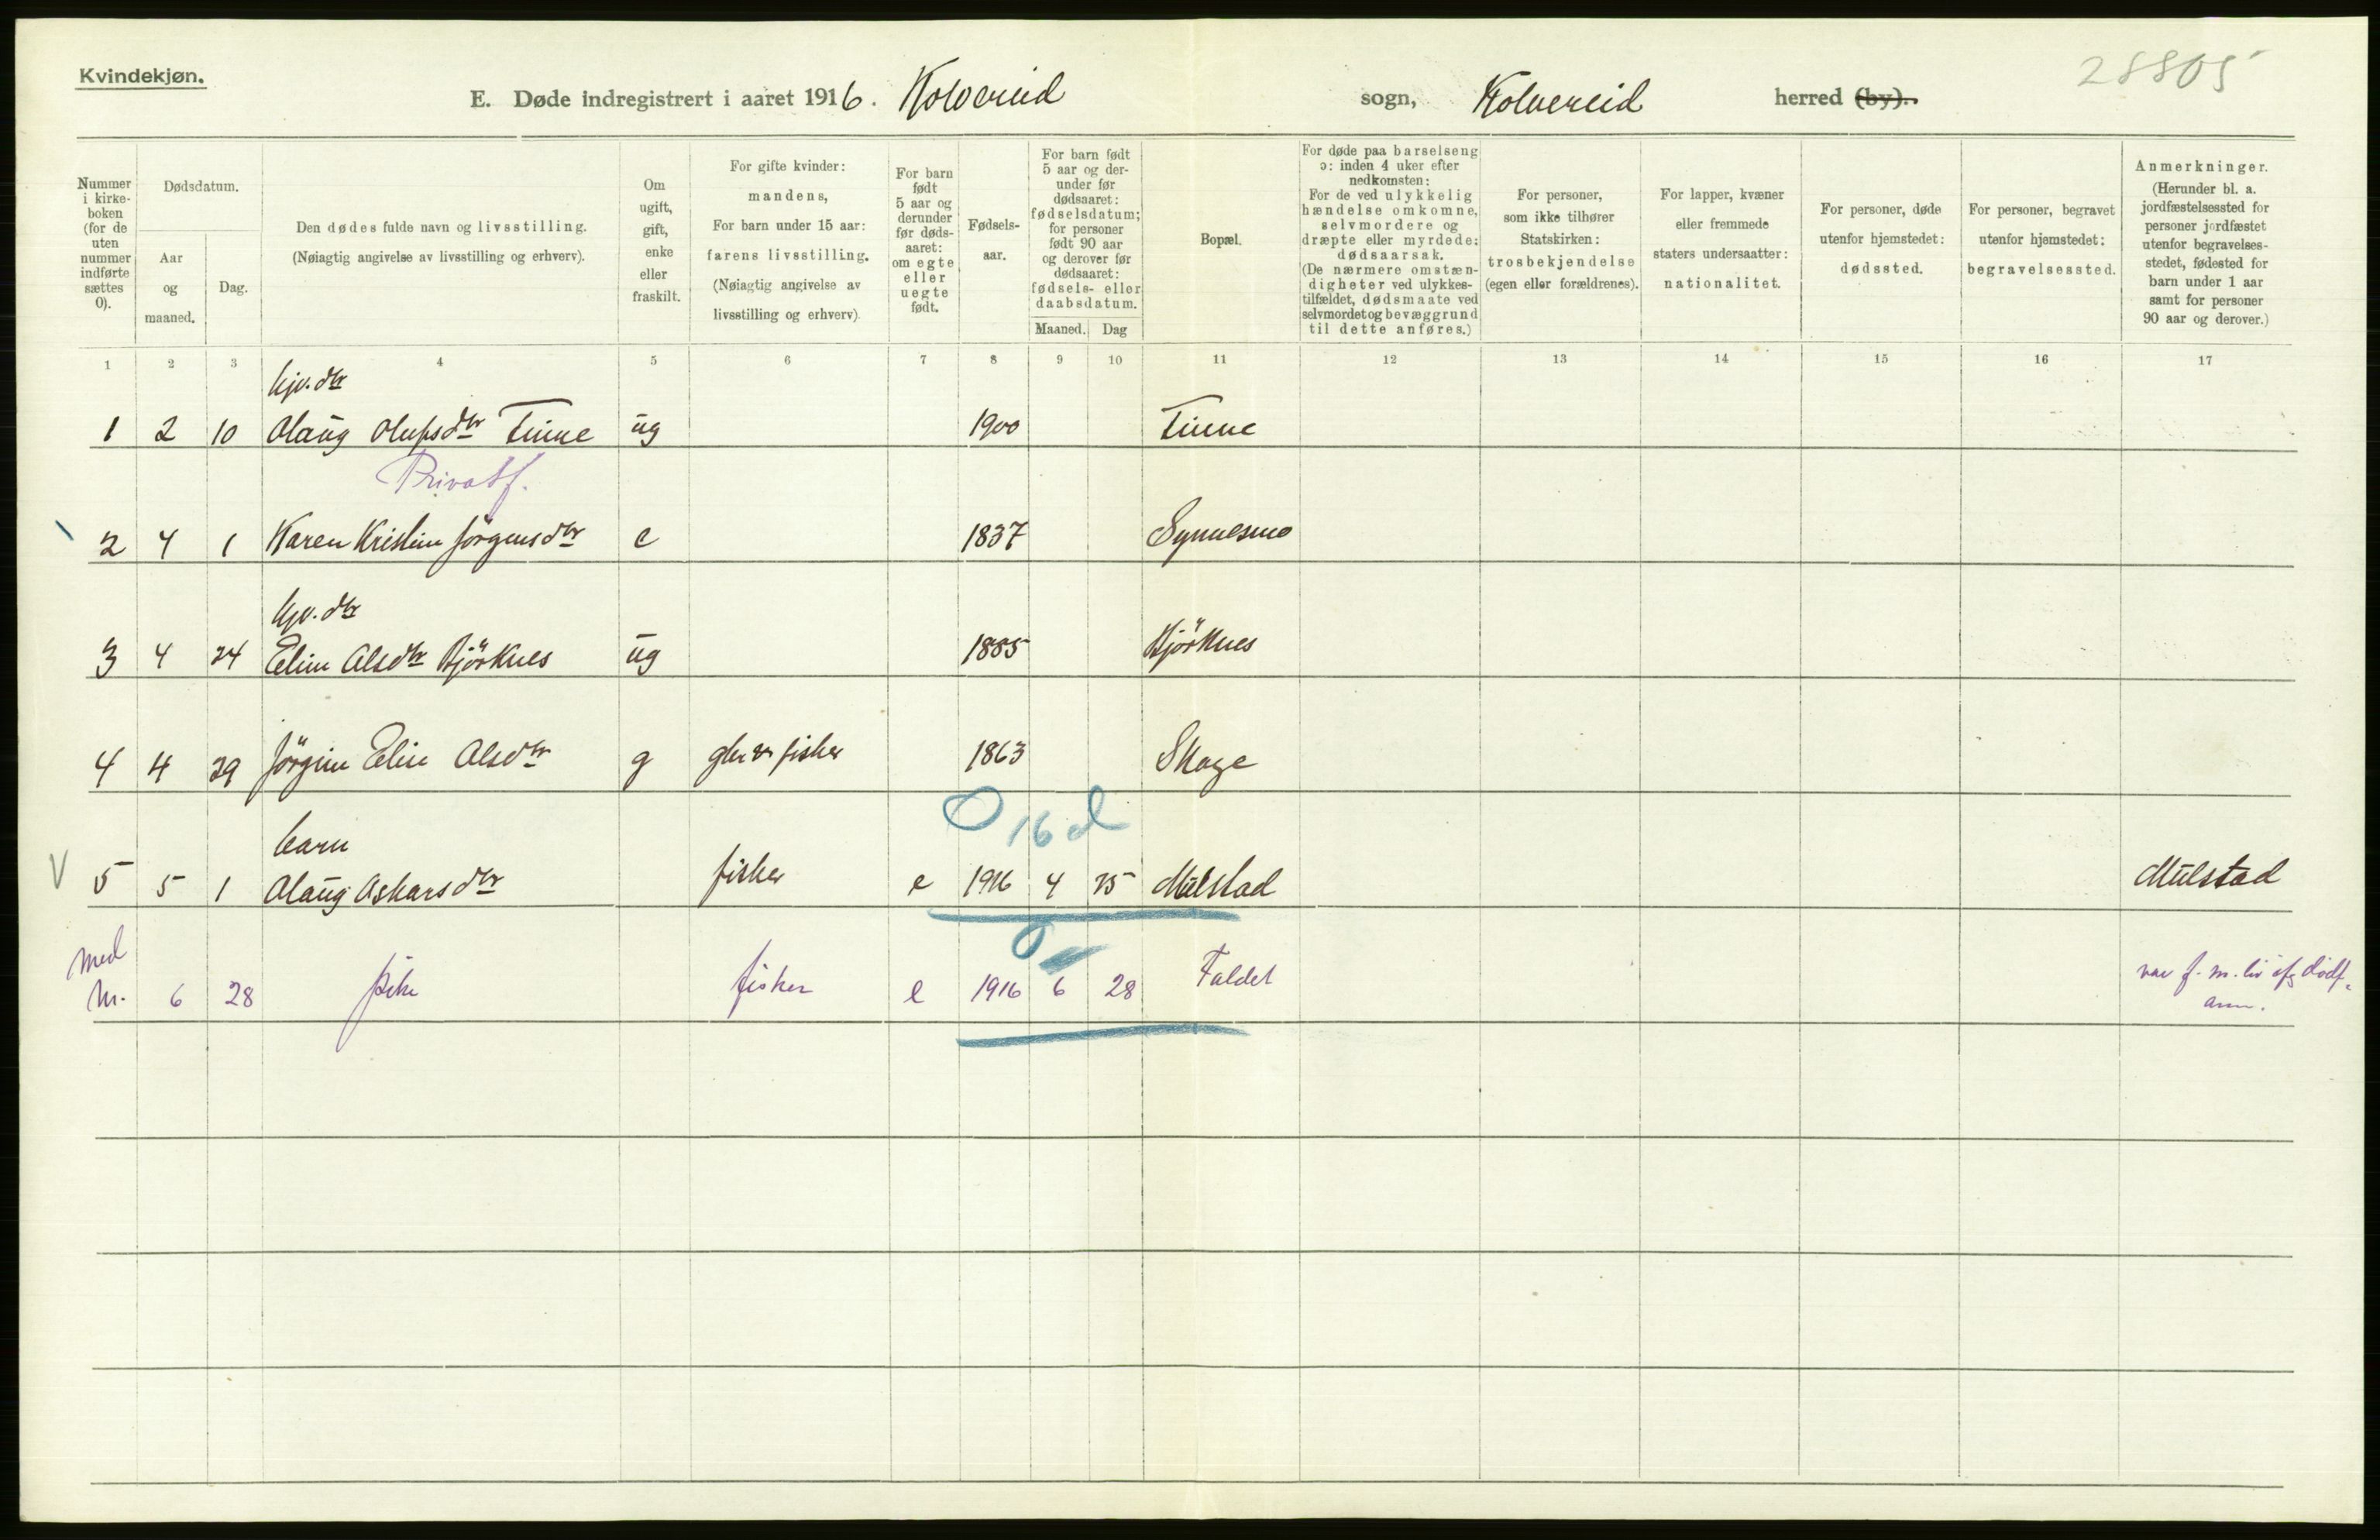 28805
Kvindekjøn.
E. Døde indregistrert i aaret 1916. Kolvereid sogn, Kolvereid herred (by).
Nummer i kirke-boken (for de uten nummer indførte sættes 0).
Dødsdatum.
Aar og maaned.
Dag.
Den dødes fulde navn og livsstilling.
(Nøiagtig angivelse av livsstilling og erhverv).
Om ugift, gift, enke eller fraskilt.
For gifte kvinder: mandens,
For barn under 15 aar: farens livsstilling.
(Nøiagtig angivelse av livsstilling og erhverv)
For barn født 5 aar og derunder før døds-aaret: om egte eller uegte født.
Fødsels-aar.
For barn født 5 aar og der-under før dødsaaret: fødselsdatum; for personer født 90 aar og derover før dødsaaret: fødsels- eller daabsdatum.
Maaned. Dag
Bopæl.
For døde paa barselseng ɔ: inden 4 uker efter nedkomsten:
For de ved ulykkelig hændelse omkomne, selvmordere og dræpte eller myrdede: dødsaarsak.
(De nærmere omstæn-digheter ved ulykkes-tilfældet, dødsmaate ved selvmordet og bevæggrund til dette anføres.)
For personer, som ikke tilhører Statskirken: trosbekjendelse (egen eller forældrenes).
For lapper, kvæner eller fremmede staters undersaatter: nationalitet.
For personer, døde utenfor hjemstedet: dødssted.
For personer, begravet utenfor hjemstedet: begravelsessted.
Anmerkninger.
(Herunder bl. a. jordfæstelsessted for personer jordfæstet utenfor begravelses-stedet, fødested for barn under 1 aar samt for personer 90 aar og derover.)
1 2 3 4 5 6 7 8 9 10 11 12 13 14 15 16 17
1 2 10 Olaug Olufsdtr Finne ug 1900 Finne
Privat f.
2 4 1 Karen Kristin Jörgensdtr e 1837
3 4 24 Elin Alsdtr Björknes ug 1885 Björknes
4 4 29 Jörgine Elise Alsdtr g fisker 1863 Skage
0 16 d
barn
V 5 5 1 Olaug Oskarsdtr fisker e 1916 4 25 Mulstad Mulstad
0
med
Nr. 6 28 pike fisker e 1916 6 28 Faldet